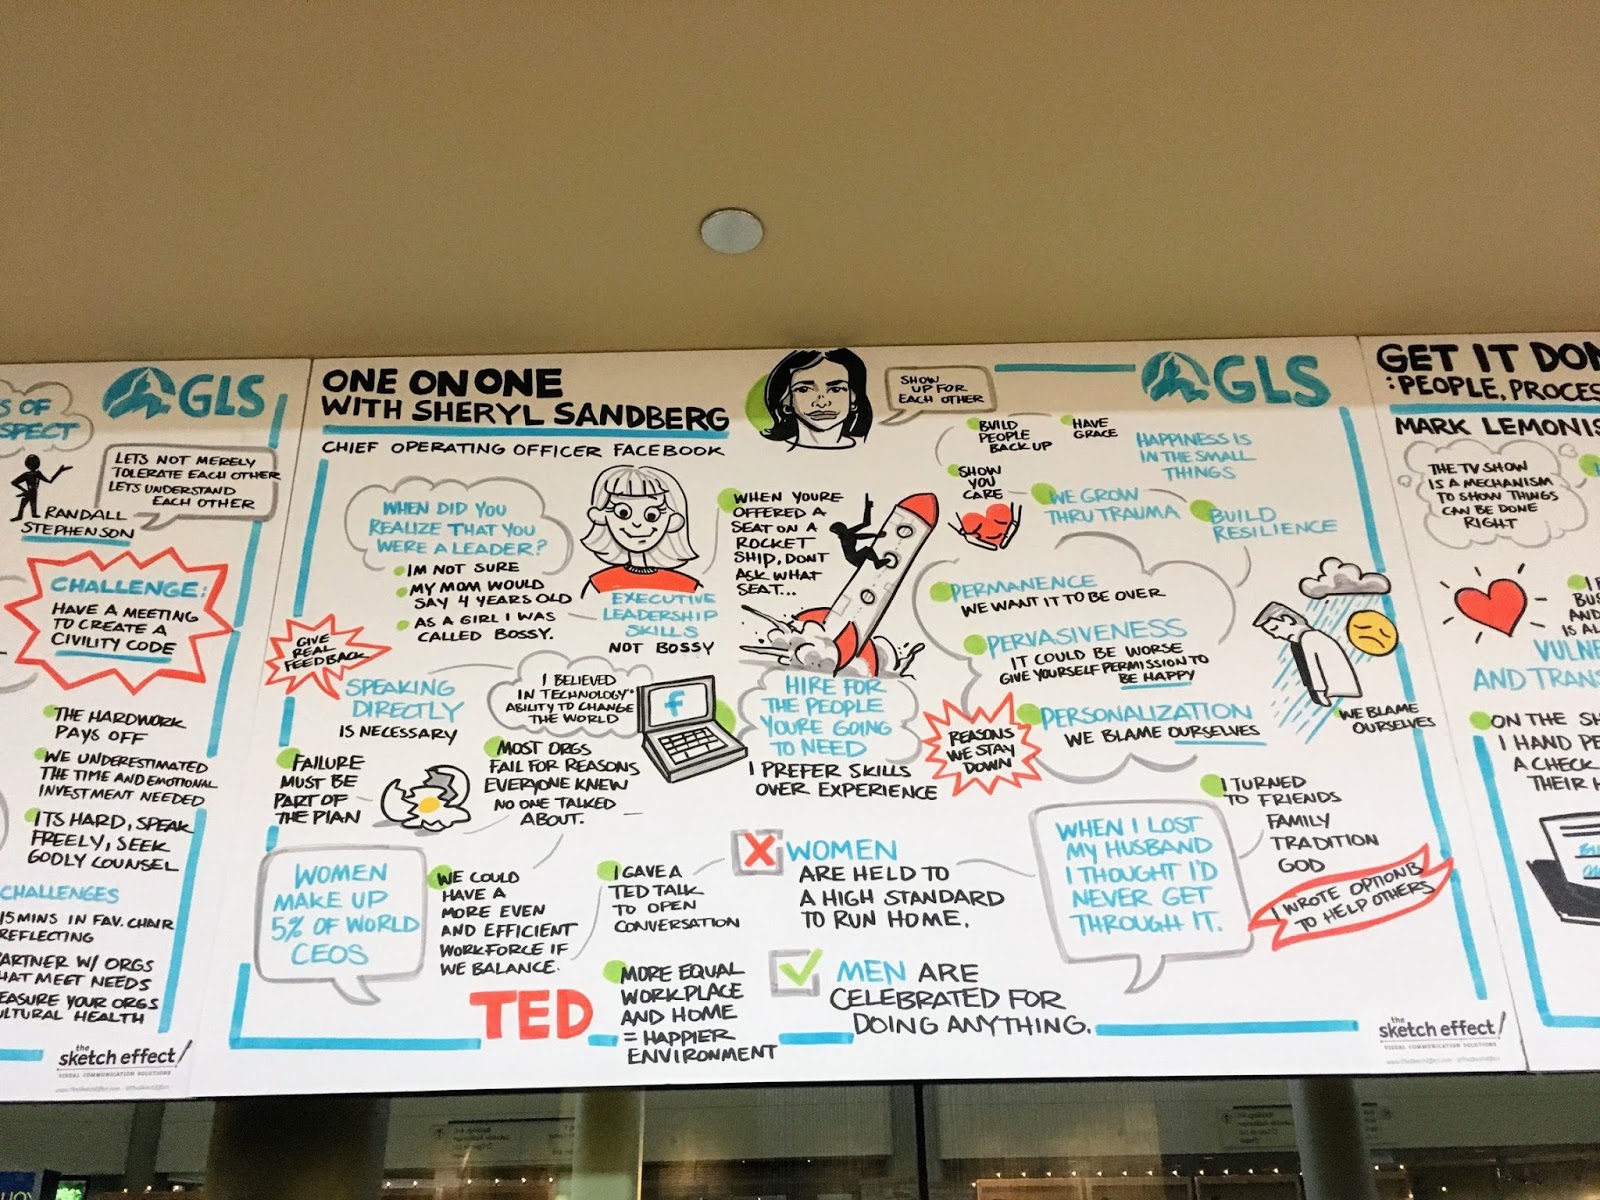 S OF
SPECT
GLS
LETS NOT MERELY
TOLERATE EACH OTHER
LETS UNDERSTAND
EACH OTHER
RANDALL
STEPHENSON
CHALLENGE:
HAVE A MEETING
TO CREATE A
CIVILITY CODE
THE HARDWORK
PAYS OFF
WE UNDERESTIMATED
THE TIME AND EMOTIONAL
INVESTMENT NEEDED
ITS HARD, SPEAK
FREELY, SEEK
GODLY COUNSEL
CHALLENGES
15 MINS IN FAV. CHAIR
REFLECTING
PARTNER W/ ORGS
HAT MEET NEEDS
EASURE YOUR ORGS
ULTURAL HEALTH
the
sketch effect!
VISUAL COMMUNICATION SOLUTIONS
ONE ON ONE
WITH SHERYL SANDBERG
CHIEF OPERATING OFFICER FACEBOOK
SHOW
UP FOR
EACH OTHER
GLS
WHEN DID YOU
REALIZE THAT YOU
WERE A LEADER?
IM NOT SURE
MY MOM WOULD
SAY 4 YEARS OLD
AS A GIRL I WAS
CALLED BOSSY.
EXECUTIVE
LEADERSHIP
SKILLS
NOT BOSSY
GIVE
REAL
FEEDBACK
SPEAKING
DIRECTLY
IS NECESSARY
I BELIEVED
IN TECHNOLOGY'
ABILITY TO CHANGE
THE WORLD
f
FAILURE
MUST BE
PART OF
THE PLAN
MOST ORGS
FAIL FOR REASONS
EVERYONE KNEW
NO ONE TALKED
ABOUT.
WOMEN
MAKE UP
5% OF WORLD
CEOS
WE COULD
HAVE A
MORE EVEN
AND EFFICIENT
WORKFORCE IF
WE BALANCE.
I GAVE A
TED TALK
TO OPEN
CONVERSATION
TED
MORE EQUAL
WORKPLACE
AND HOME
= HAPPIER
ENVIRONMENT
WHEN YOURE
OFFERED A
SEAT ON A
ROCKET
SHIP, DONT
ASK WHAT
SEAT...
HIRE FOR
THE PEOPLE
YOURE GOING
TO NEED
I PREFER SKILLS
OVER EXPERIENCE
X WOMEN
ARE HELD TO
A HIGH STANDARD
TO RUN HOME.
MEN ARE
CELEBRATED FOR
DOING ANYTHING.
BUILD
PEOPLE
BACK UP
HAVE
GRACE
HAPPINESS IS
IN THE SMALL
THINGS
SHOW
YOU
CARE
WE GROW
THRU TRAUMA
BUILD
RESILIENCE
PERMANENCE
WE WANT IT TO BE OVER
PERVASIVENESS
IT COULD BE WORSE
GIVE YOURSELF PERMISSION TO
BE HAPPY
PERSONALIZATION
WE BLAME OURSELVES
REASONS
WE STAY
DOWN
WE BLAME
OURSELVES
WHEN I LOST
MY HUSBAND
I THOUGHT I'D
NEVER GET
THROUGH IT.
I TURNED
TO FRIENDS
FAMILY
TRADITION
GOD
I WROTE OPTION B
TO HELP OTHERS
the
sketch effect!
VISUAL COMMUNICATION SOLUTIONS
GET IT DON
: PEOPLE, PROCES
MARK LEMONIS
THE TV SHOW
IS A MECHANISM
TO SHOW THINGS
CAN BE DONE
RIGHT
VULN
AND TRANS
ON THE SH
I HAND PE
A CHECK
THEIR